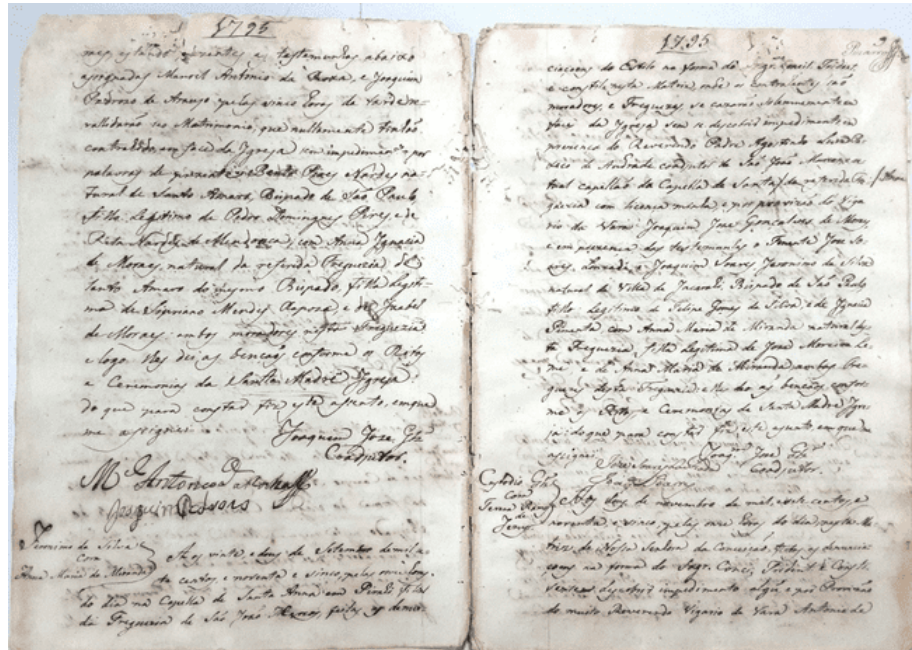 1795
mes, estando prezentes as testemunhas abaixo
asignadas Manoel Antonio da Rocha, e Joaquim
Pedrozo de Araujo pelas sinco horas da tarde re-
validarão seo Matrimonio, que nullamente tinhão
contrahido, em face da Igreja sem impedimento, e por
palavras de prezente Bento Pires Nardes na-
tural de Santo Amaro, Bispado de São Paulo
filho legitimo de Pedro Domingues Pires, e de
Rita Nardes de Mendonça; com Anna Ignacia
de Moraes, natural da referida Freguezia de
Santo Amaro do mesmo Bispado, filha legiti-
ma de Mendes Rapozo e de Izabel
de Moraes: ambos moradores nesta Freguezia
e logo lhes dei as bençaos conforme os Ritos
e Ceremonias da Santa Madre Igreja
do que para constar fiz este asento, em que
me asignei
Joaquim Jozé Glz
Coadjutor.
Mel Antonio da Rocha
Joaquim Pedrozo
Jeronimo da Silva
com
Anna Maria de Miranda
Aos vinte, e dous de Setembro de mil, se-
te centos, e noventa, e sinco, pelas onze horas
do dia na Capella de Santa Anna em Pirahi filial
da Freguezia de São João Marcos, feitas as denun-
1795
ciaçoens do Estilo na forma do Sagr. Concil. Trident.
e constit. nesta Matriz, onde os contrahentes são
moradores, e Freguezes, se cazarão solemnemente em
face da Igreja sem se descobrir impedimento em
prezença do Reverendo Padre Agostinho
de Andrade coadjutor de São João Marcos
capellão da Capella de Santa da referida Fre-
guezia com licença minha, e por provizão do Viga-
rio da Vara Joaquim Jose Gonsalves de Moraes,
e em prezença das testemunhas o Tenente Joze So-
ares Louzada, e Joaquim Soares, Jeronimo da Silva
natural da Villa de Jacarahi Bispado de São Paulo
filho legitimo de Felipe Gomes da Silva, e de Ignacia
Pimenta com Anna Maria de Miranda natural des-
ta Freguezia, filha legitima de José Moreira Le-
me e de Anna Maria de Miranda, ambos Fre-
guezes desta Freguezia, e lhe deo as bençaos confor-
me os Ritos, e Ceremonias da Santa Madre Igre-
ja: do que para constar fiz este asento, em que me
asignei
Joaqm José Glz
Coadjutor.
Custodio Glz
com
Thereza Maria
de
Jesus
Aos dous de novembro de mil, e sete centos, e
noventa, e sinco, pelas onze horas do dia nesta Ma-
triz de Nossa Senhora da Conceição, feitas as denuncia-
çoens na forma do Sagr. Conci. Trident. e Constit.
sem se descobrir impedimento algũ, e por Provizão
do muito Reverendo Vigario da Vara Antonio de